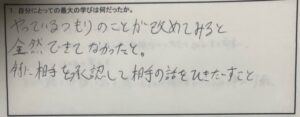 1. 自分にとっての最大の学びは何だったか。
やっているつもりのことが改めてみると
全然できてなかったと。
特に相手を承認して相手の話をひきだすこと